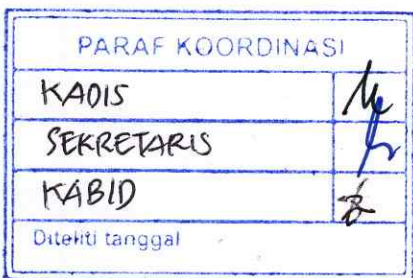 PARAF KOORDINASI
KADIS
SEKRETARIS
KABID
Diteliti tanggal